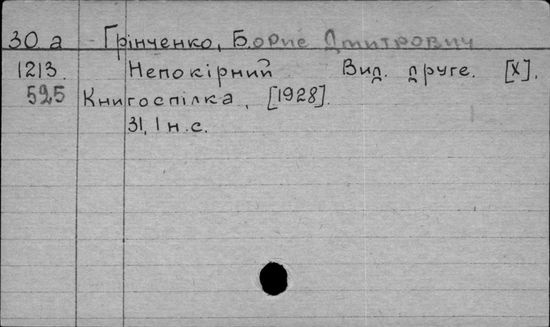 30 а Грінченко, Борис Дмитрович
1213. Непокірний Вид. друге. [Х].
525 Книгоспілка, [1928].
31, 1 н.с.